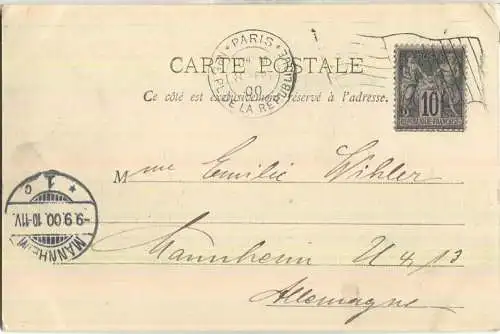 PARIS
PL. DE LA REPUBLIQUE
00
CARTE POSTALE
10
REPUBLIQUE FRANÇAISE
Ce côté est exclusivement réservé à l'adresse.
Mme Emilie Wihler
MANNHEIM
-9.9.00.10-11V.
* 1 c
Mannheim U 4 13
Allemagne